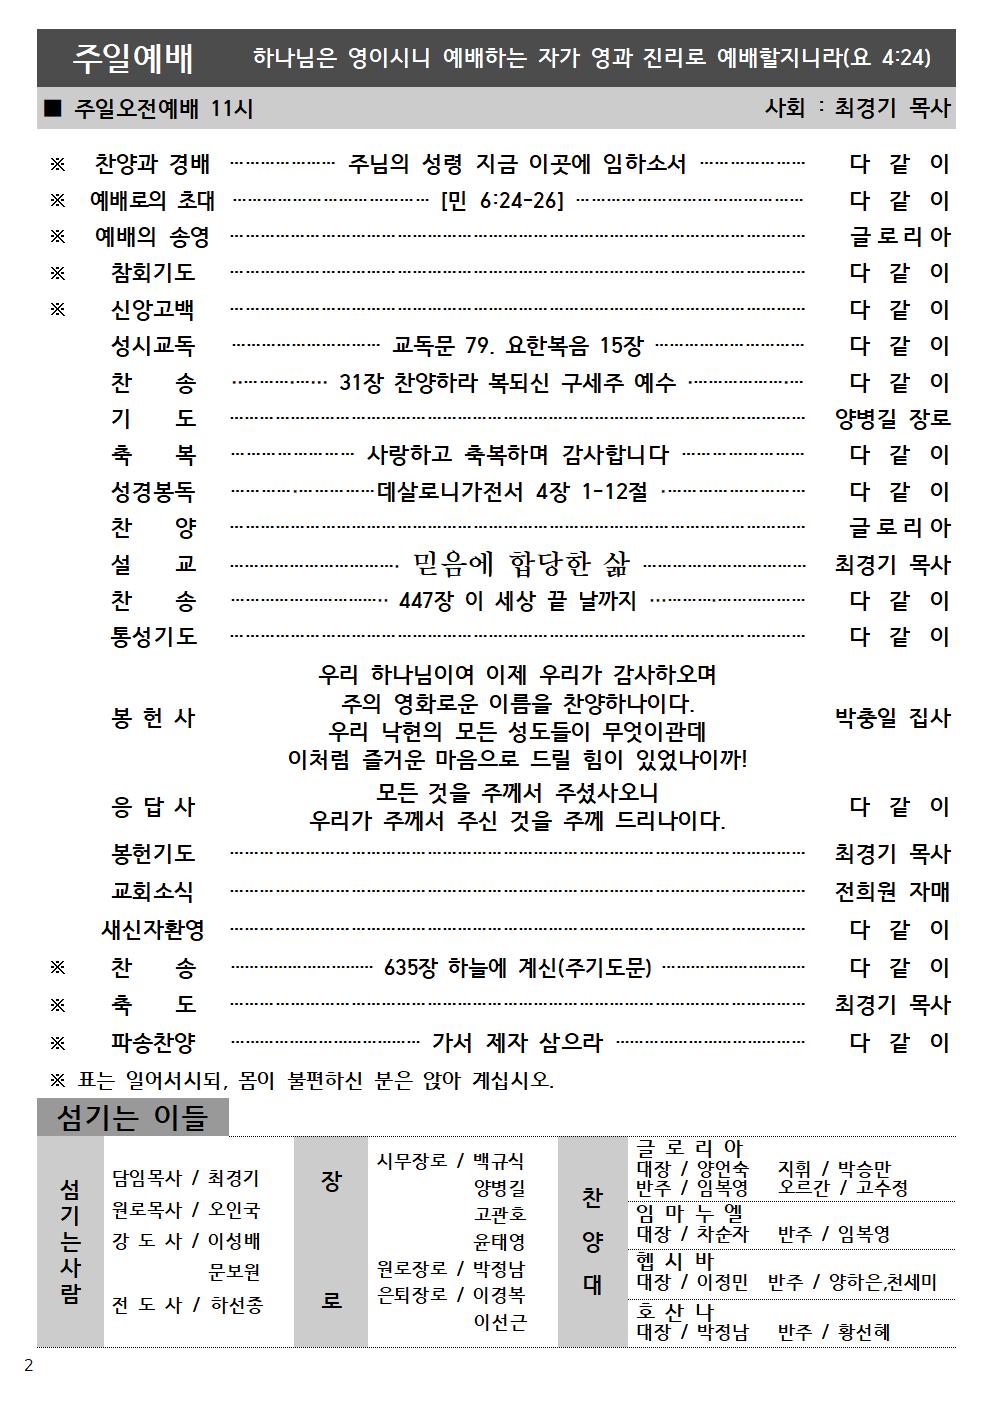 주일예배 하나님은 영이시니 예배하는 자가 영과 진리로 예배할지니라(요 4:24)
■ 주일오전예배 11시 사회 : 최경기 목사
※ 찬양과 경배 ………………… 주님의 성령 지금 이곳에 임하소서 ………………… 다 같 이
※ 예배로의 초대 ………………………………… [민 6:24-26] ……………………………………… 다 같 이
※ 예배의 송영 …………………………………………………………………………………………………… 글로리아
※ 참회기도 …………………………………………………………………………………………………… 다 같 이
※ 신앙고백 …………………………………………………………………………………………………… 다 같 이
성시교독 ………………………… 교독문 79. 요한복음 15장 ………………………… 다 같 이
찬 송 ………………… 31장 찬양하라 복되신 구세주 예수 ………………… 다 같 이
기 도 …………………………………………………………………………………………………… 양병길 장로
축 복 …………………… 사랑하고 축복하며 감사합니다 …………………… 다 같 이
성경봉독 ………………………데살로니가전서 4장 1-12절 ……………………… 다 같 이
찬 양 …………………………………………………………………………………………………… 글로리아
설 교 …………………………… 믿음에 합당한 삶 …………………………… 최경기 목사
찬 송 ………………………… 447장 이 세상 끝 날까지 ………………………… 다 같 이
통성기도 …………………………………………………………………………………………………… 다 같 이
우리 하나님이여 이제 우리가 감사하오며
주의 영화로운 이름을 찬양하나이다.
봉 헌 사 박충일 집사
우리 낙현의 모든 성도들이 무엇이관데
이처럼 즐거운 마음으로 드릴 힘이 있었나이까!
모든 것을 주께서 주셨사오니
응 답 사 다 같 이
우리가 주께서 주신 것을 주께 드리나이다.
봉헌기도 …………………………………………………………………………………………………… 최경기 목사
교회소식 …………………………………………………………………………………………………… 전희원 자매
새신자환영 …………………………………………………………………………………………………… 다 같 이
※ 찬 송 ………………………… 635장 하늘에 계신(주기도문) ………………………… 다 같 이
※ 축 도 …………………………………………………………………………………………………… 최경기 목사
※ 파송찬양 ………………………………… 가서 제자 삼으라 ………………………………… 다 같 이
※ 표는 일어서시되, 몸이 불편하신 분은 앉아 계십시오.
섬기는 이들
섬기는사람
담임목사 / 최경기
원로목사 / 오인국
강 도 사 / 이성배
문보원
전 도 사 / 하선종
장로
시무장로 / 백규식
양병길
고관호
윤태영
원로장로 / 박정남
은퇴장로 / 이경복
이선근
찬양대
글 로 리 아
대장 / 양언숙 지휘 / 박승만
반주 / 임복영 오르간 / 고수정
임 마 누 엘
대장 / 차순자 반주 / 임복영
헵 시 바
대장 / 이정민 반주 / 양하은,천세미
호 산 나
대장 / 박정남 반주 / 황선혜
2